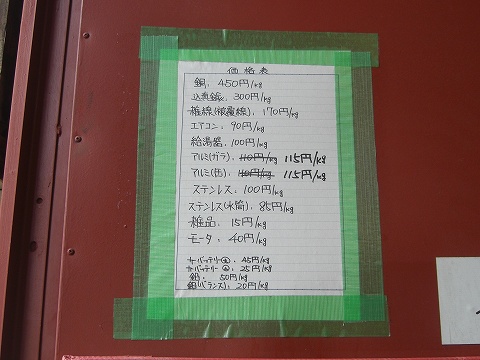 価格表
銅: 450円/kg
込真鍮: 300円/kg
雑線(被覆線): 170円/kg
エアコン: 90円/kg
給湯器: 100円/kg
アルミ(ガラ): 110円/kg 115円/kg
アルミ(缶): 110円/kg 115円/kg
ステンレス: 100円/kg
ステンレス(水筒): 85円/kg
雑品: 15円/kg
モータ: 40円/kg
バッテリー 45円/kg
バッテリー 25円/kg
鉛: 50円/kg
(バランス): 20円/kg